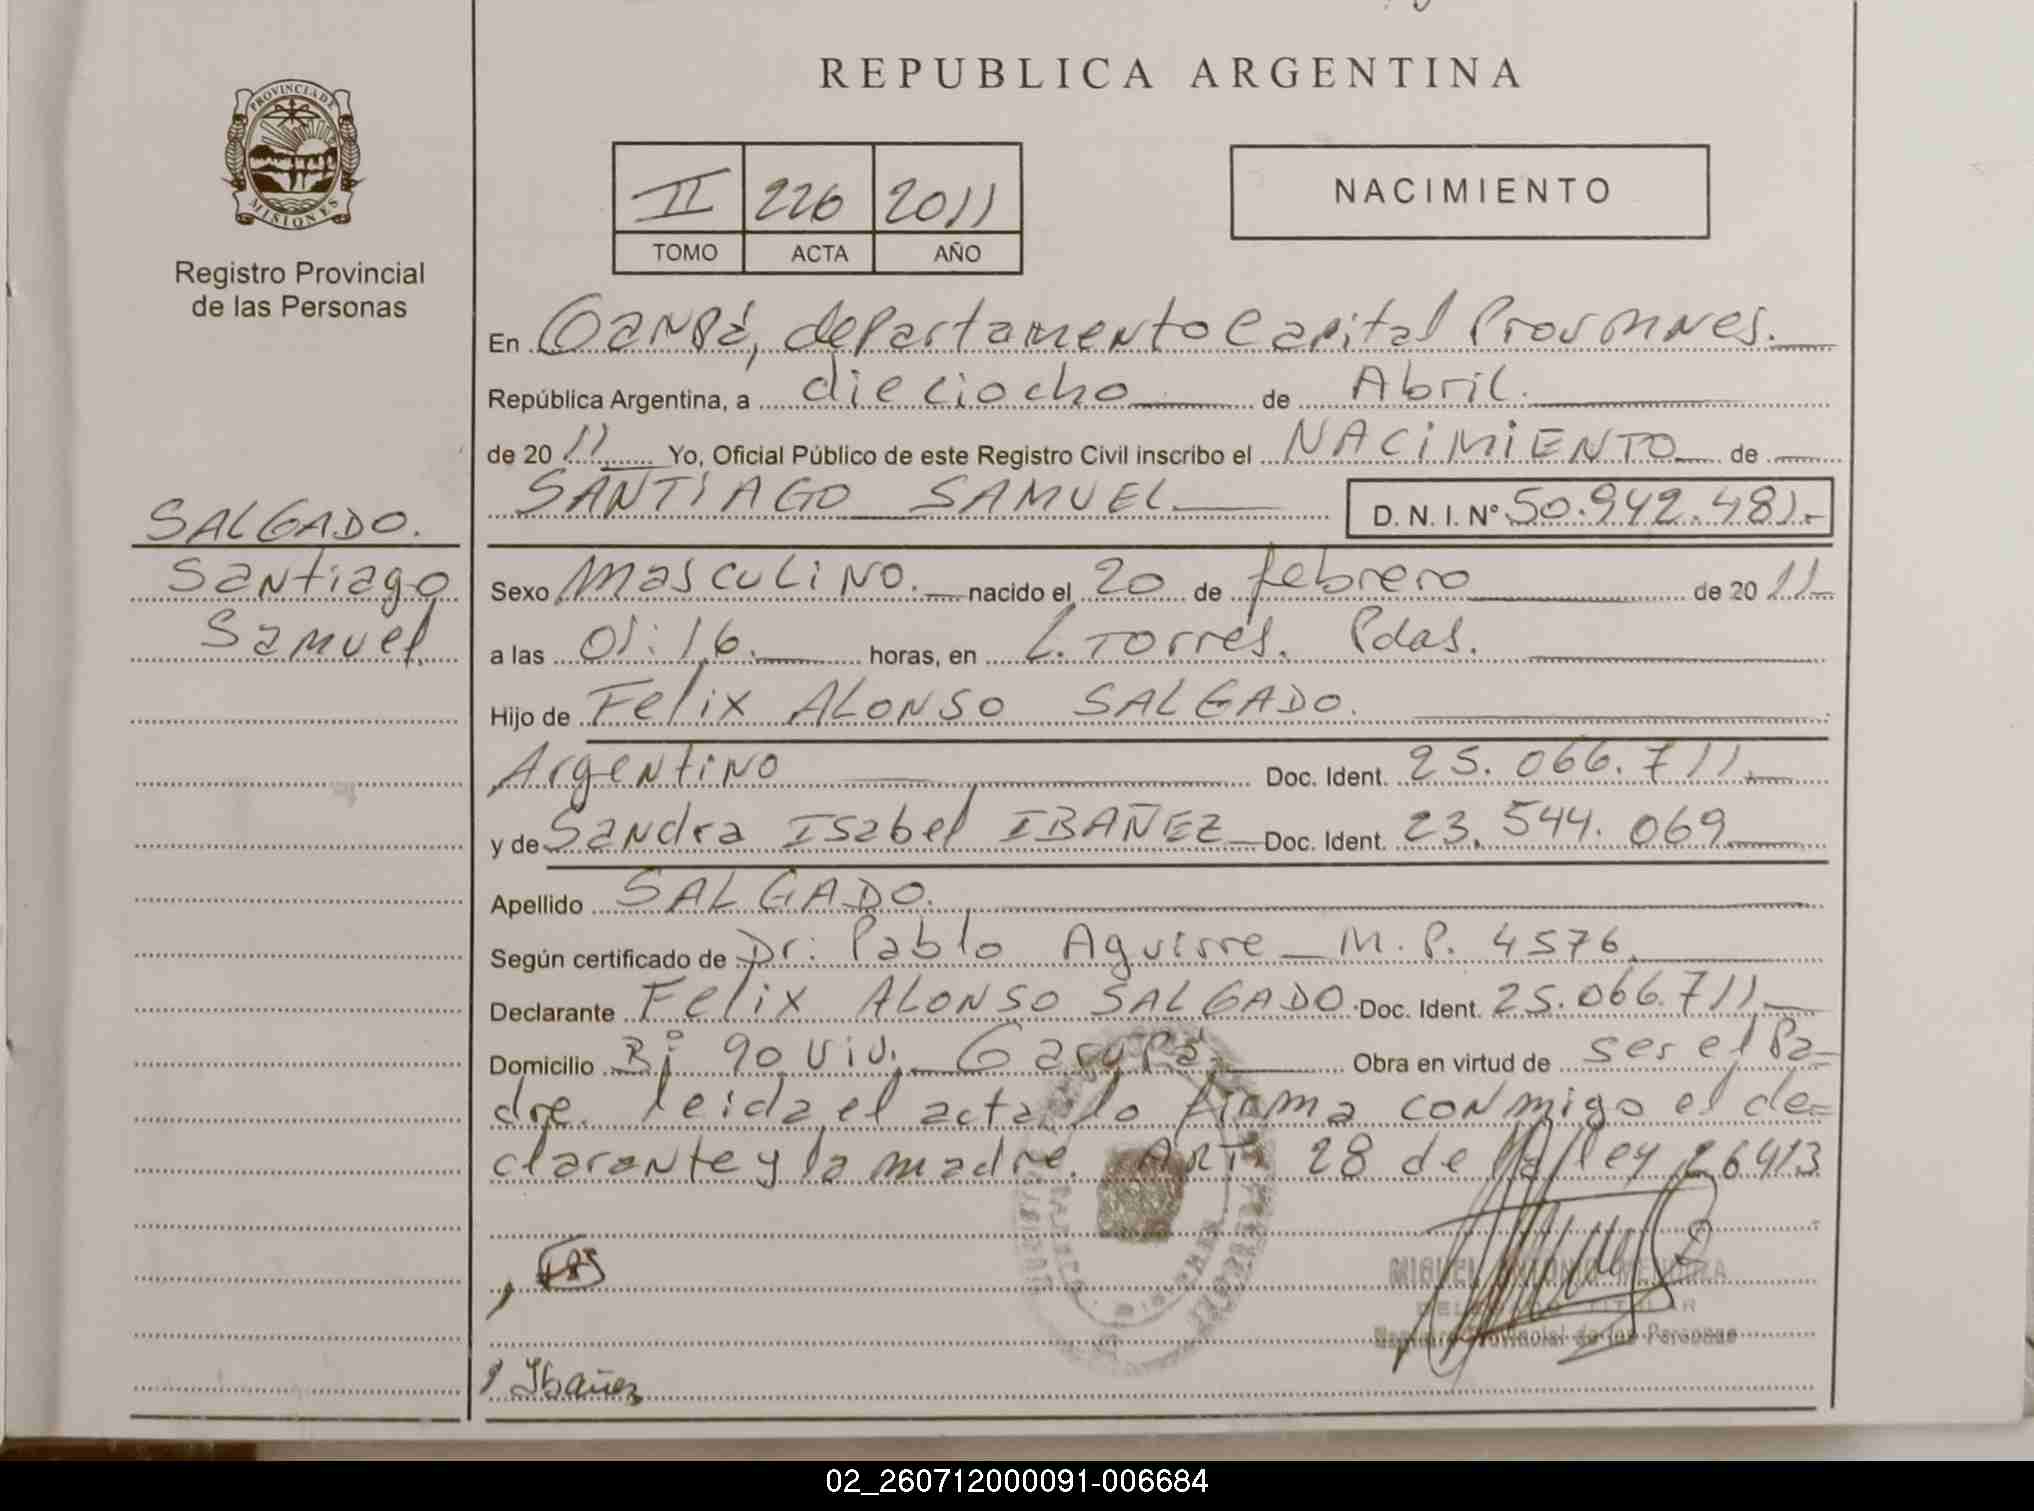 REPUBLICA ARGENTINA
PROVINCIA DE MISIONES
Registro Provincial
de las Personas
II 226 2011
TOMO ACTA AÑO
NACIMIENTO
En Garupá, departamento Capital Prov Mnes.
República Argentina, a dieciocho de Abril.
de 2011 Yo, Oficial Público de este Registro Civil inscribo el NACIMIENTO de
SANTIAGO SAMUEL D. N. I. Nº 50.942.481.-
SALGADO.
Santiago
Samuel.
Sexo Masculino. nacido el 20 de febrero de 2011
a las 01:16. horas, en L. Torres. Pdas.
Hijo de Felix ALONSO SALGADO.
Argentino Doc. Ident. 25.066.711
y de Sandra Isabel IBAÑEZ Doc. Ident. 23.544.069
Apellido SALGADO.
Según certificado de Dr. Pablo Aguirre M.P. 4576
Declarante Felix ALONSO SALGADO. Doc. Ident. 25.066.711
Domicilio Bº 90 Viv. Garupá Obra en virtud de ser el Pa-
dre. leida el acta lo firma conmigo el de-
clarante y la madre. ART. 28 de la ley 26413
MIGUEL ANTONIO
DELEGADO TITULAR
Registro Provincial de las Personas
Ibañez
02_260712000091-006684